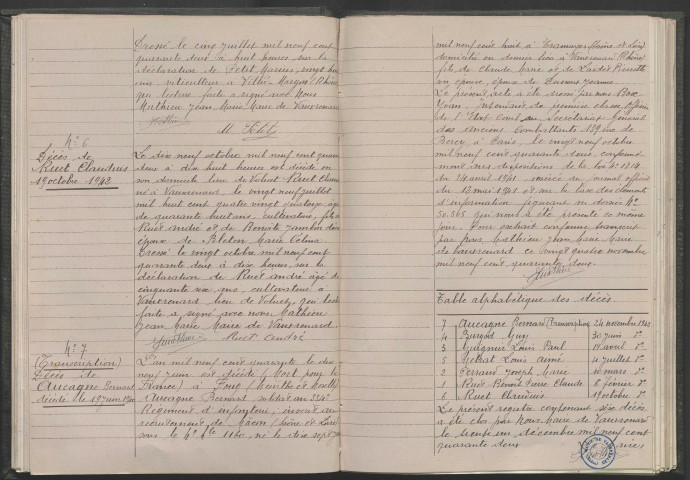 Dressé le cinq juillet mil neuf cent
quarante deux à huit heures sur la
déclaration de Petit Marius, vingt huit
ans viticulteur à Villié-Morgon Rhône
qui lecture faite a signé avec Nous
Mathieu Jean Marie Maire de Vauxrenard
Mathieu
M. Petit
N° 6
Décès de
Ruet Claudius
19 octobre 1942
Le dix neuf octobre mil neuf cent quarante
deux à dix huit heures est décédé en
son domicile lieu de Valuet Ruet Claudius
né à Vauxrenard le vingt neuf juillet
mil huit cent quatre vingt
de quarante huit ans, cultivateur, fils de
Ruet André et de Benoite Jambon
époux de Bleton Marie Celma.
Dressé le vingt octobre mil neuf cent
quarante deux à dix heures, sur la
déclaration de Ruet André âgé de
cinquante six ans, cultivateur à
Vauxrenard lieu de qui lecture
faite a signé avec nous Mathieu
Jean Marie Maire de Vauxrenard.
Mathieu Ruet André
N° 7
(Transcription)
Décès de
Aucagne Bernard
décédé le 19 juin 1940
L'an mil neuf cent quarante le dix
neuf juin est décédé (Mort pour la
France) à Foug (Meurthe et Moselle)
Aucagne Bernard soldat au
Régiment d'infanterie, inscrit au
recrutement de Macon (Saône et Loire)
sous le N° 1160, né le dix sept
mil neuf cent huit à Tramayes (Saône et Loire)
domicilié en dernier lieu à Vauxrenard (Rhône)
fils de Claude Marie et de
époux de
Le présent acte a été dressé par nous
Intendant de première classe, officier
de l'Etat Civil au Secrétariat Général
des anciens Combattants 139 rue de
Bercy à Paris, le vingt neuf octobre
mil neuf cent quarante deux, conformé-
ment aux dispositions de la loi N°
du avril 1941 inséré au Journal officiel
du 13 mai 1941 et sur le vu des éléments
d'information figurant au dossier N°
50.565 qui nous a été présenté ce même
jour. Pour extrait conforme transcrit
par nous Mathieu Jean Marie Maire
de Vauxrenard ce vingt quatre novembre
mil neuf cent quarante deux.
Mathieu
Table alphabétique des décès.
7 Aucagne Bernard (Transcription) 24 novembre 1942
4 Burgod Guy 30 juin d°
3 Guignier Louis Paul 19 avril d°
5 Louis Aimé 4 juillet d°
2 Perraud Joseph Marie 10 mars d°
1 Ruet Benoit Pierre Claude 8 février d°
6 Ruet Claudius 19 octobre d°
Le présent registre contenant sept décès
a été clos par Nous Maire de Vauxrenard
le trente un décembre mil neuf cent
quarante deux